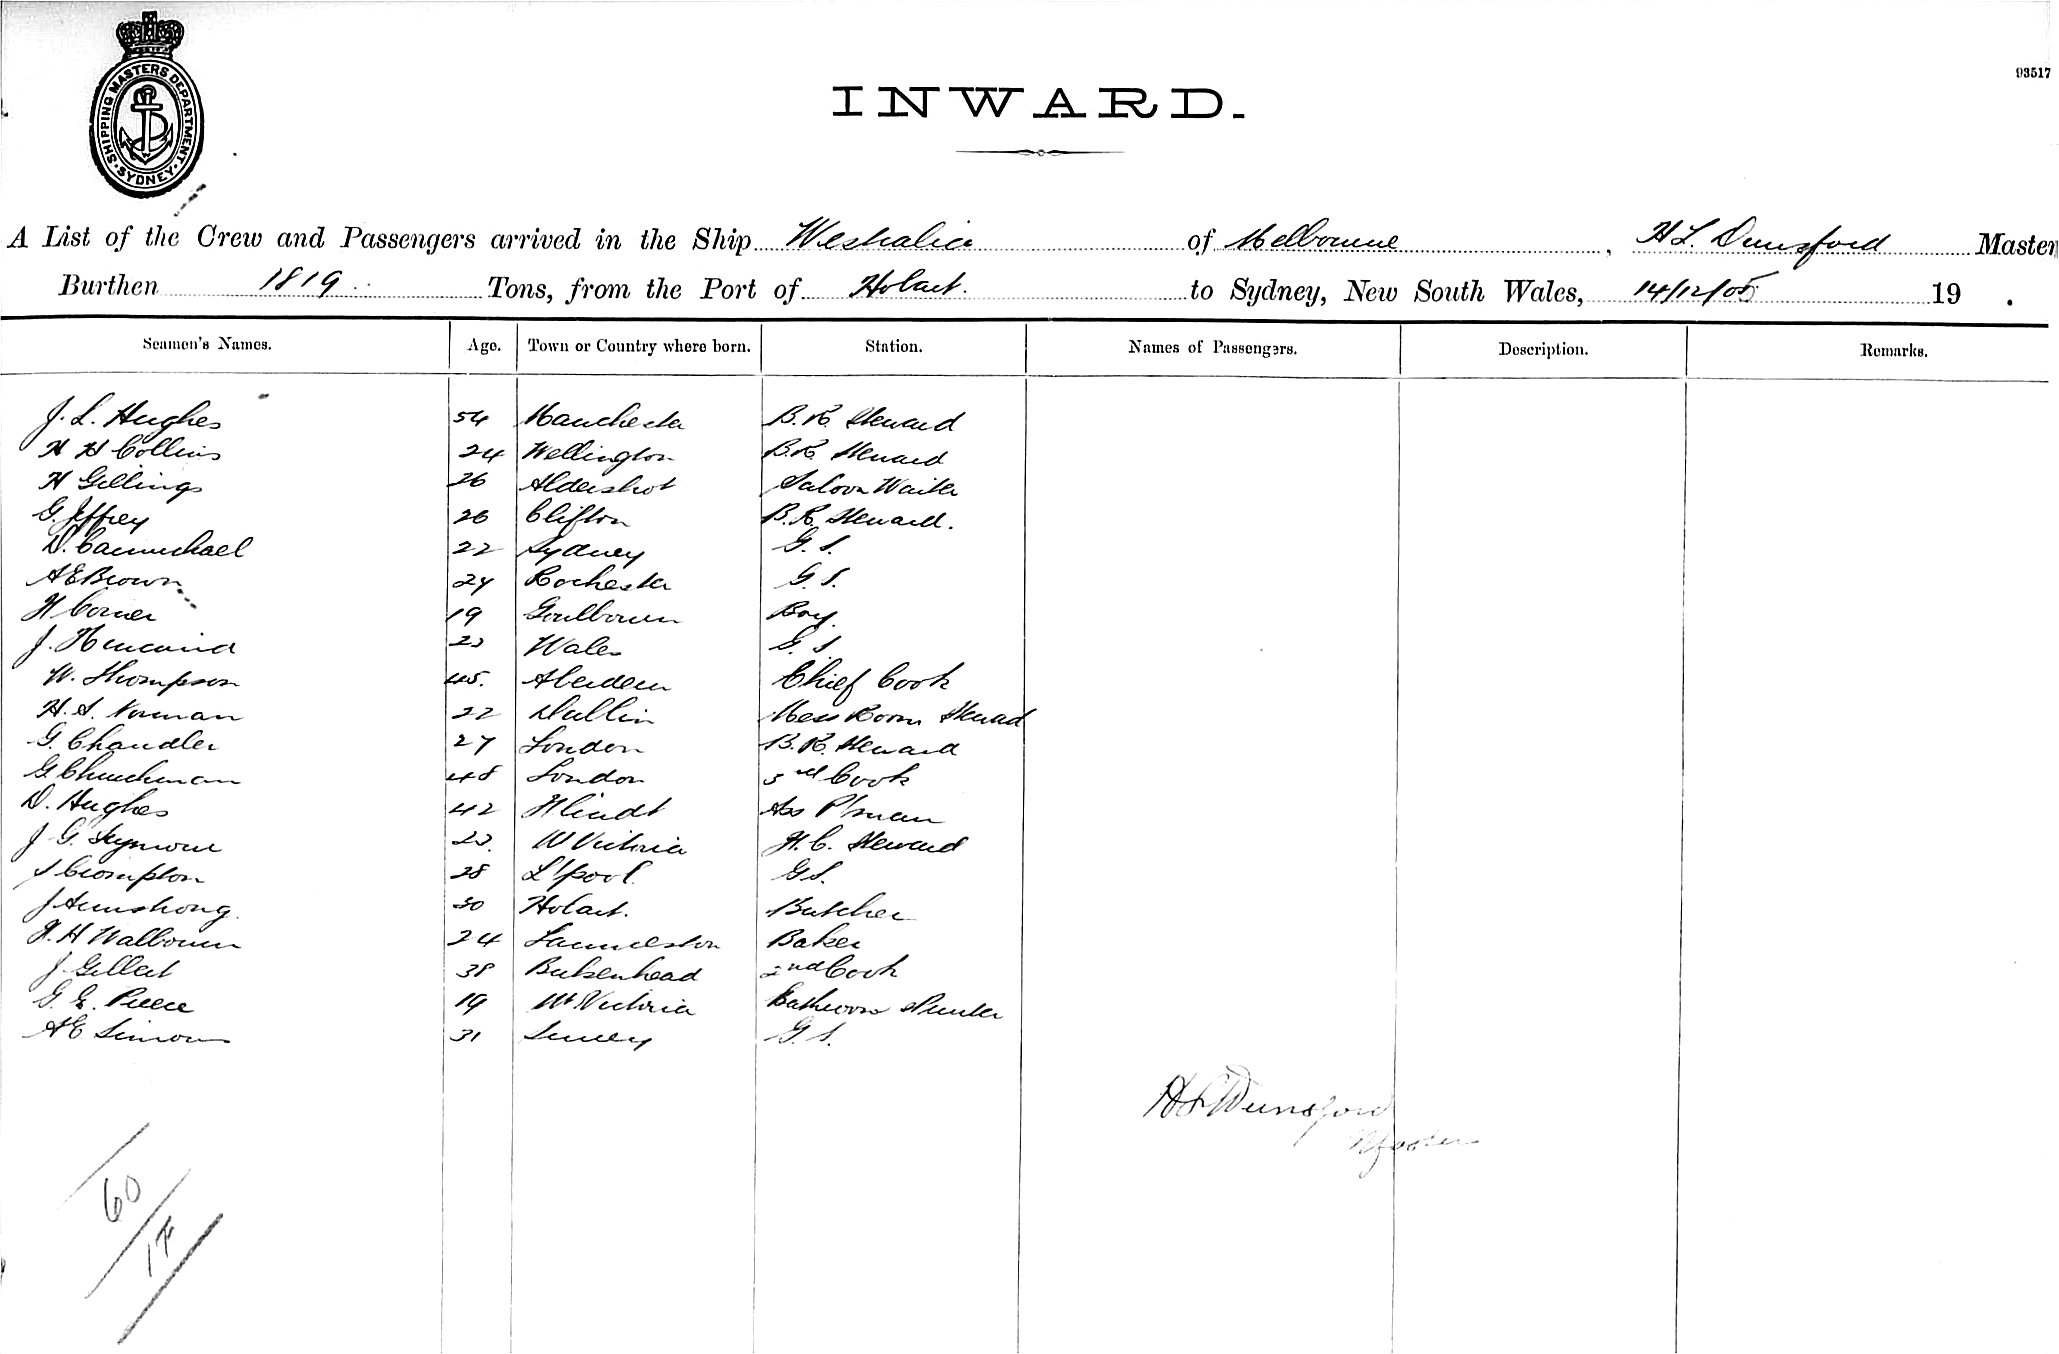 SHIPPING MASTERS DEPARTMENT
SYDNEY
93517
INWARD.
A List of the Crew and Passengers arrived in the Ship Westralia of Melbourne, H L Dunsford Master
Burthen 1819 Tons, from the Port of Hobart. to Sydney, New South Wales, 14/12/05 19 .
Seamen's Names. Age. Town or Country where born. Station. Names of Passengers. Description. Remarks.
J. L. Hughes 54 Manchester B.R. Steward
H H Collins 24 Wellington B.R. Steward
H Gillings 26 Aldershot Saloon Waiter
G. Jeffrey 26 Clifton B.R. Steward.
D. Carmichael 22 Sydney G. S.
A E Brown 24 Rochester G. S.
H Corner 19 Goulburn Boy.
J. 23 Wales G. S.
W. Thompson 45. Aberdeen Chief Cook
H. S. Norman 22 Dublin Mess Room Steward
G. Chandler 27 London B. R. Steward
G Churchman 48 London 3rd Cook
D. Hughes 42 Flindt Ass P'man
J G. Seymour 23. W Victoria F. C. Steward
S Crompton 28 L'pool. G S.
J Armstrong. 30 Hobart. Butcher
F. H Walbourn 24 Launceston Baker
J Gillect 38 Birkenhead 2nd Cook
G. E. Pierce 19 W Victoria Bathroom
A E Simons 31 Surrey G. S.
H L Dunsford
Master
60
17